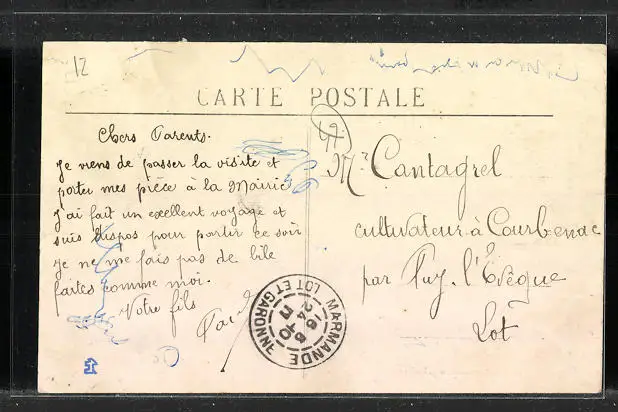 12
CARTE POSTALE
Chers Parents.
Je viens de passer la visite et
porter mes pièce à la Mairie
j'ai fait un exellent voyage et
suis dispos pour partir ce soir
Je ne me fais pas de bile
faites comme moi.
Votre fils
47
Mr Cantagrel
cultivateur à Courbenac
par Puy-l'Evêque
Lot
MARMANDE
LOT ET GARONNE
16 10
24